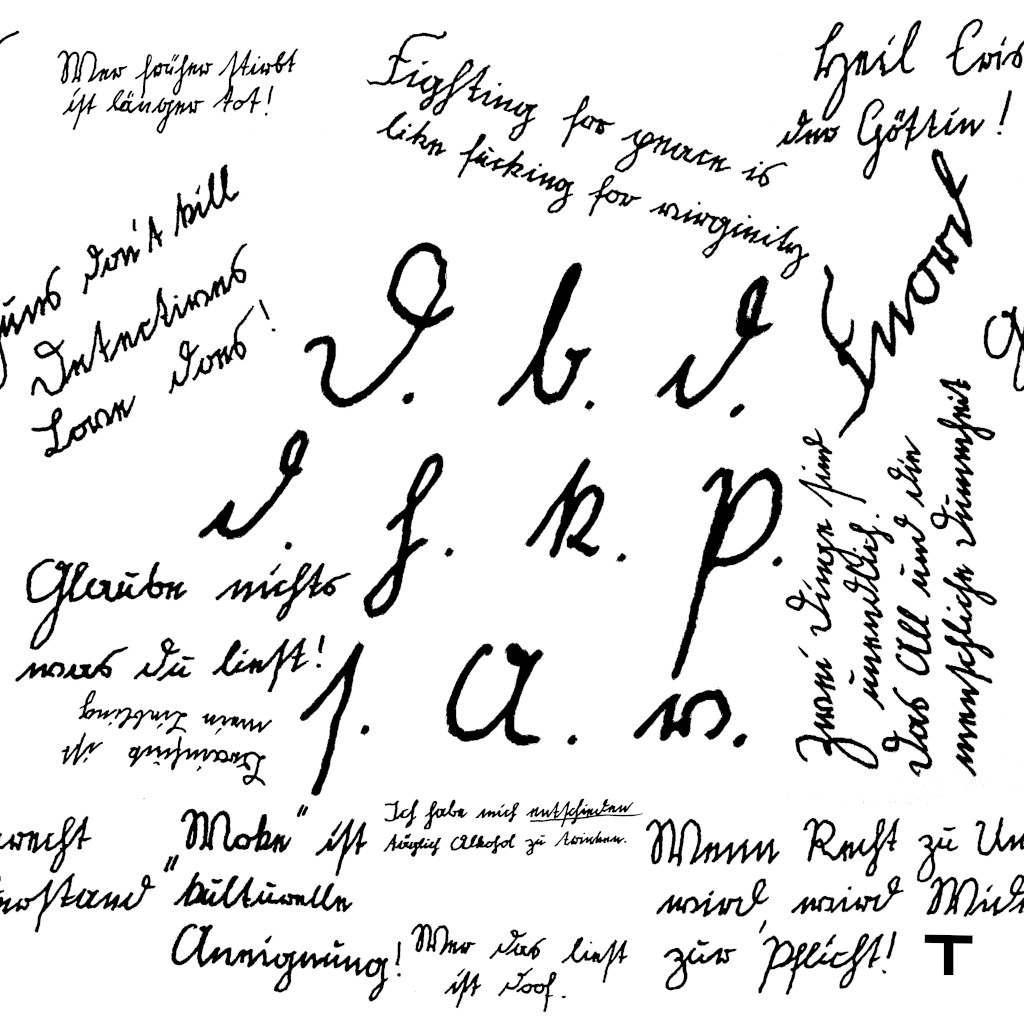 Wer früher stirbt
ist länger tot!
Fighting for peace is
like fucking for virginity
Heil Eris
der Göttin!
uns don't kill
Detectives
Love does!
Fnord
G
D. b. d.
d. h. k. P.
s. A. w.
Zwei Dinge sind
unendlich.
Das All und die
menschliche Dummheit
Glaube nichts
was du liest!
ist
mein Liebling
recht
erstand
„Moke" ist
kulturelle
Aneignung!
Ich habe mich entschieden
täglich Alkohol zu trinken.
Wer das liest
ist doof.
Wenn Recht zu Un
wird, wird Wide
zur Pflicht!
T